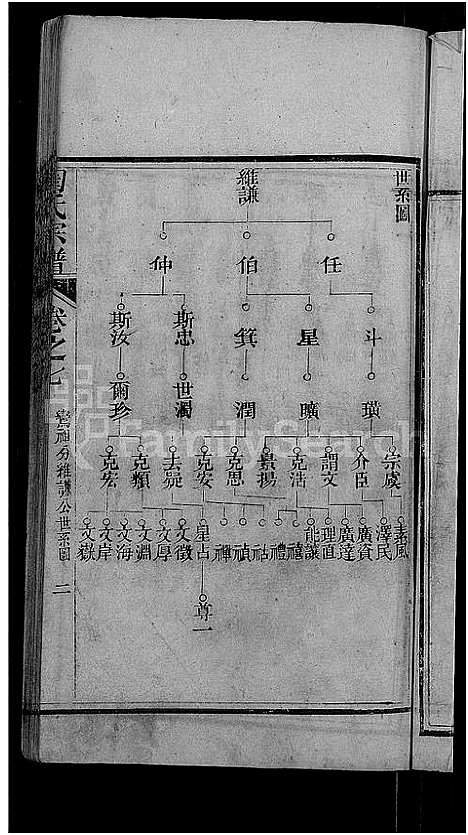 世系圖
維謙
任
伯
仲
斗
星
箕
斯忠
斯汝
璜
曠
潤
世濁
爾珍
宗虞
介臣
謂文
克浩
景揚
克思
克安
去疑
克類
克宏
素風
澤民
廣貧
廣達
理直
能謙
禧
禮
祜
禎
禪
星占
文徵
文厚
文淵
文海
文岸
文嶽
尊一
氏宗譜
卷之七
分維謙公世系圖
二
FamilySearch